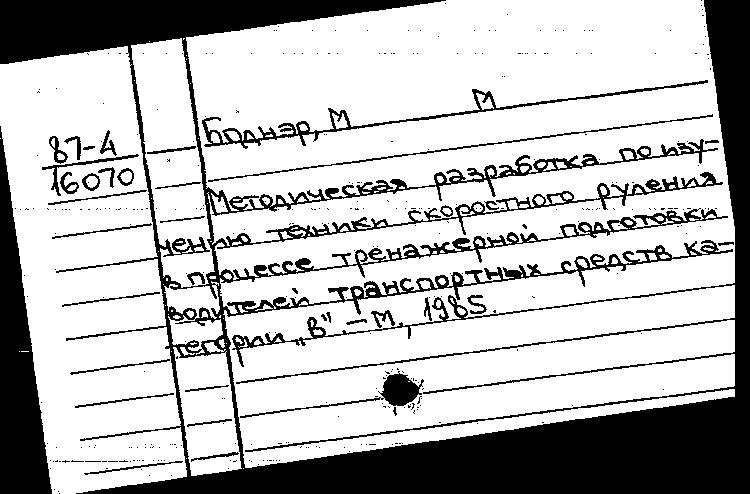 87-4
16070
Боднэр, М М
Методическая разработка по изу-
чению техники скоростного руления
в процессе тренажерной подготовки
водителей транспортных средств ка-
тегории „В". – М., 1985.